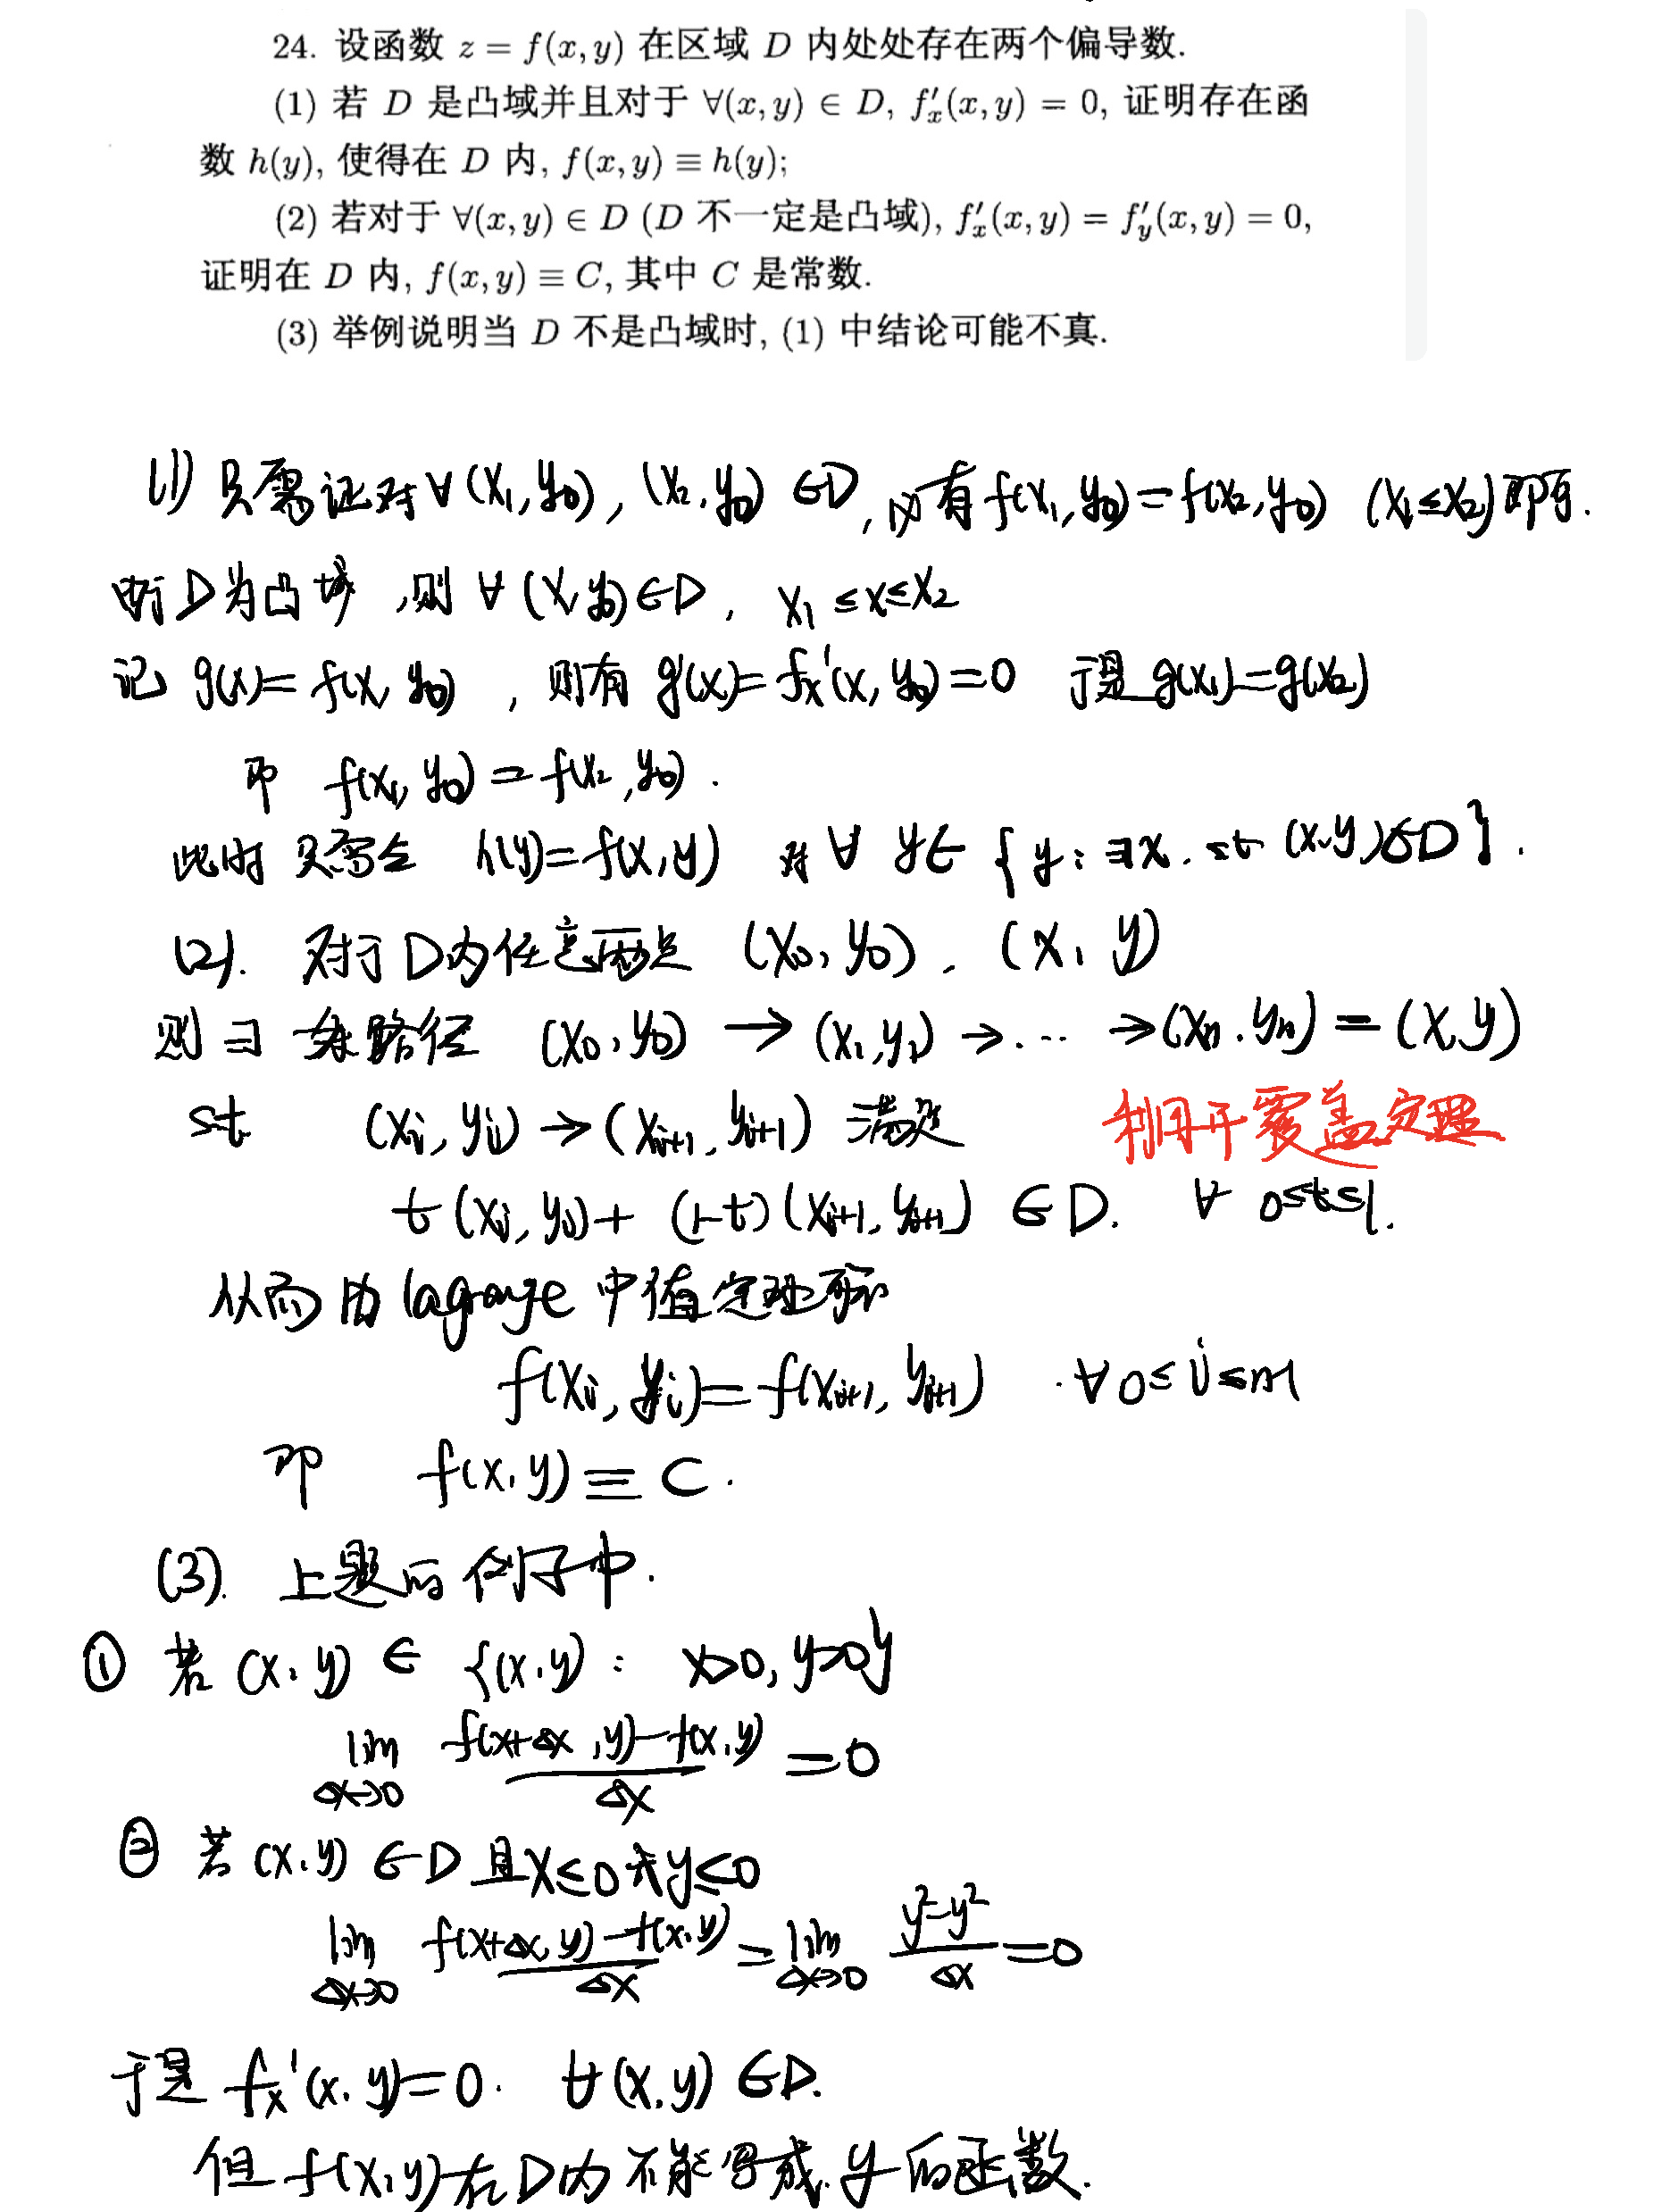 24. 设函数 z = f(x,y) 在区域 D 内处处存在两个偏导数.
(1) 若 D 是凸域并且对于 ∀(x,y) ∈ D, f′ₓ(x,y) = 0, 证明存在函
数 h(y), 使得在 D 内, f(x,y) ≡ h(y);
(2) 若对于 ∀(x,y) ∈ D (D 不一定是凸域), f′ₓ(x,y) = f′ᵧ(x,y) = 0,
证明在 D 内, f(x,y) ≡ C, 其中 C 是常数.
(3) 举例说明当 D 不是凸域时, (1) 中结论可能不真.
(1) 只需证对 ∀ (x₁, y₀), (x₂, y₀) ∈D, 有 f(x₁, y₀)=f(x₂, y₀) (x₁≤x₂) 即可.
由于 D 为凸域, 则 ∀ (x, y₀)∈D, x₁≤x≤x₂
记 g(x)=f(x, y₀), 则有 g′(x)=fₓ′(x, y₀)=0 于是 g(x₁)=g(x₂)
即 f(x₁, y₀)=f(x₂, y₀).
此时 只需令 h(y)=f(x,y) 对 ∀ y∈ {y: ∃x. st (x,y)∈D}.
(2). 对于 D内任意两点 (x₀, y₀), (x, y)
则 ∃ 一条路径 (x₀, y₀) → (x₁, y₁) → ··· → (xₙ, yₙ) = (x, y)
st (xᵢ, yᵢ) → (xᵢ₊₁, yᵢ₊₁) 满足
利用开覆盖定理
t(xᵢ, yᵢ)+(1-t)(xᵢ₊₁, yᵢ₊₁) ∈D. ∀ 0≤t≤1.
从而由 lagrange 中值定理可知
f(xᵢ, yᵢ)=f(xᵢ₊₁, yᵢ₊₁) . ∀ 0≤i≤n-1
即 f(x, y) ≡ C.
(3). 上题的例子中.
① 若 (x, y) ∈ {(x, y): x>0, y>0}
lim_{Δx→0} (f(x+Δx, y)-f(x, y))/Δx =0
② 若 (x, y) ∈D 且 x≤0 或 y≤0
lim_{Δx→0} (f(x+Δx, y)-f(x, y))/Δx = lim_{Δx→0} (y²-y²)/Δx =0
于是 fₓ′(x, y)=0. ∀(x, y) ∈D.
但 f(x, y) 在 D内 不能写成 y 的函数.